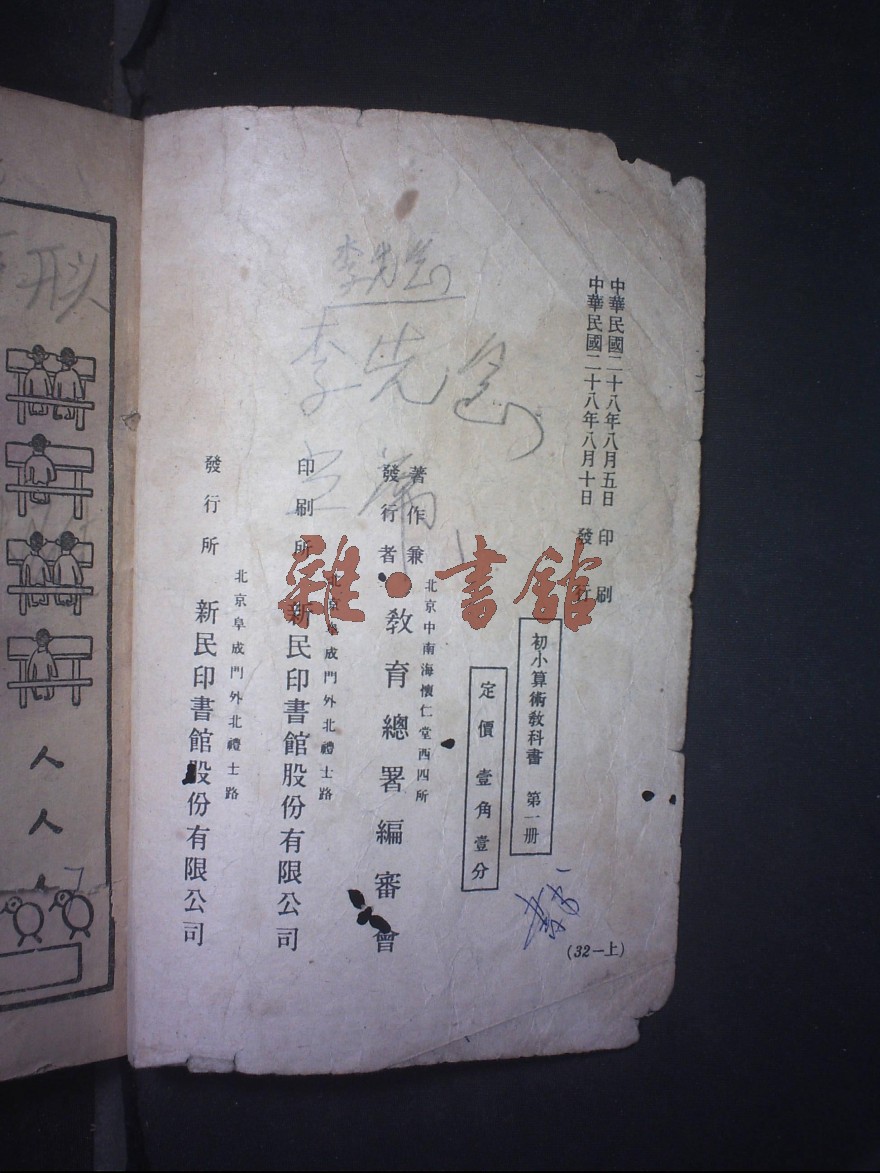 中華民國二十八年八月五日 印刷
中華民國二十八年八月十日 發行
初小算術教科書 第一册
定價壹角壹分
著作兼
發行者
北京中南海懷仁堂西四所
教育總署編審會
印刷所
北京阜成門外北禮士路
新民印書館股份有限公司
發行所
北京阜成門外北禮士路
新民印書館股份有限公司
(32—上)
李先
李先
雜·書館
形
人
人